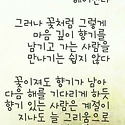 헤어진다
그러나 꽃처럼 그렇게
마음 깊이 향기를
남기고 가는 사람을
만나기는 쉽지 않다
꽃이져도 향기가 남아
다음 해를 기다리게 하듯
향기 있는 사람은 계절이
지나도 늘 그리움으로